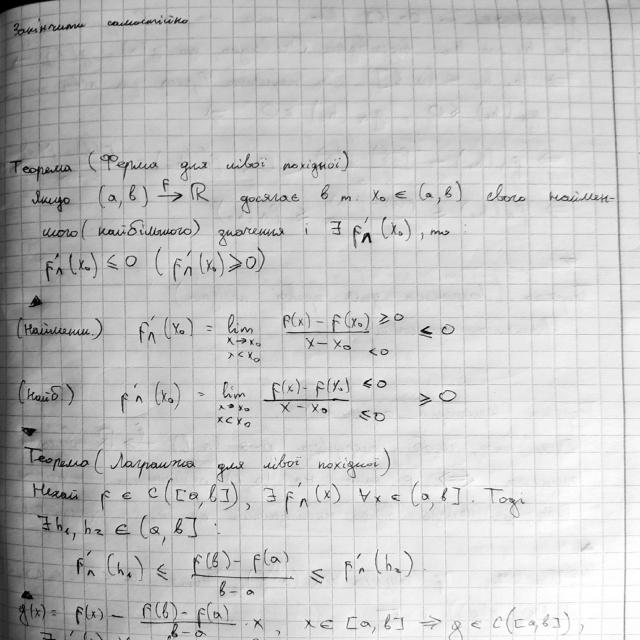 Закінчити самостійно
Теорема (Ферма для лівої похідної)
Якщо (a,b) →^F ℝ досягає в т. x₀ ∈ (a,b) свого наймен-
шого (найбільшого) значення і ∃ F'л(x₀), то:
F'л(x₀) ≤ 0 (F'л(x₀) ≥ 0)
▲
(Найменш.) F'л(x₀) = lim_{x→x₀, x<x₀} (F(x) - F(x₀) ≥0)/(x - x₀ <0) ≤ 0
(Найб.) F'л(x₀) = lim_{x→x₀, x<x₀} (F(x) - F(x₀) ≤0)/(x - x₀ ≤0) ≥ 0
▼
Теорема (Лагранжа для лівої похідної)
Нехай F ∈ C([a,b]), ∃ F'л(x) ∀x ∈ (a,b]. Тоді
∃ h₁, h₂ ∈ (a,b] :
F'л(h₁) ≤ (F(b) - F(a))/(b - a) ≤ F'л(h₂)
▲
g(x) = F(x) - (F(b) - F(a))/(b - a) · x, x ∈ [a,b] ⇒ g ∈ C([a,b]),